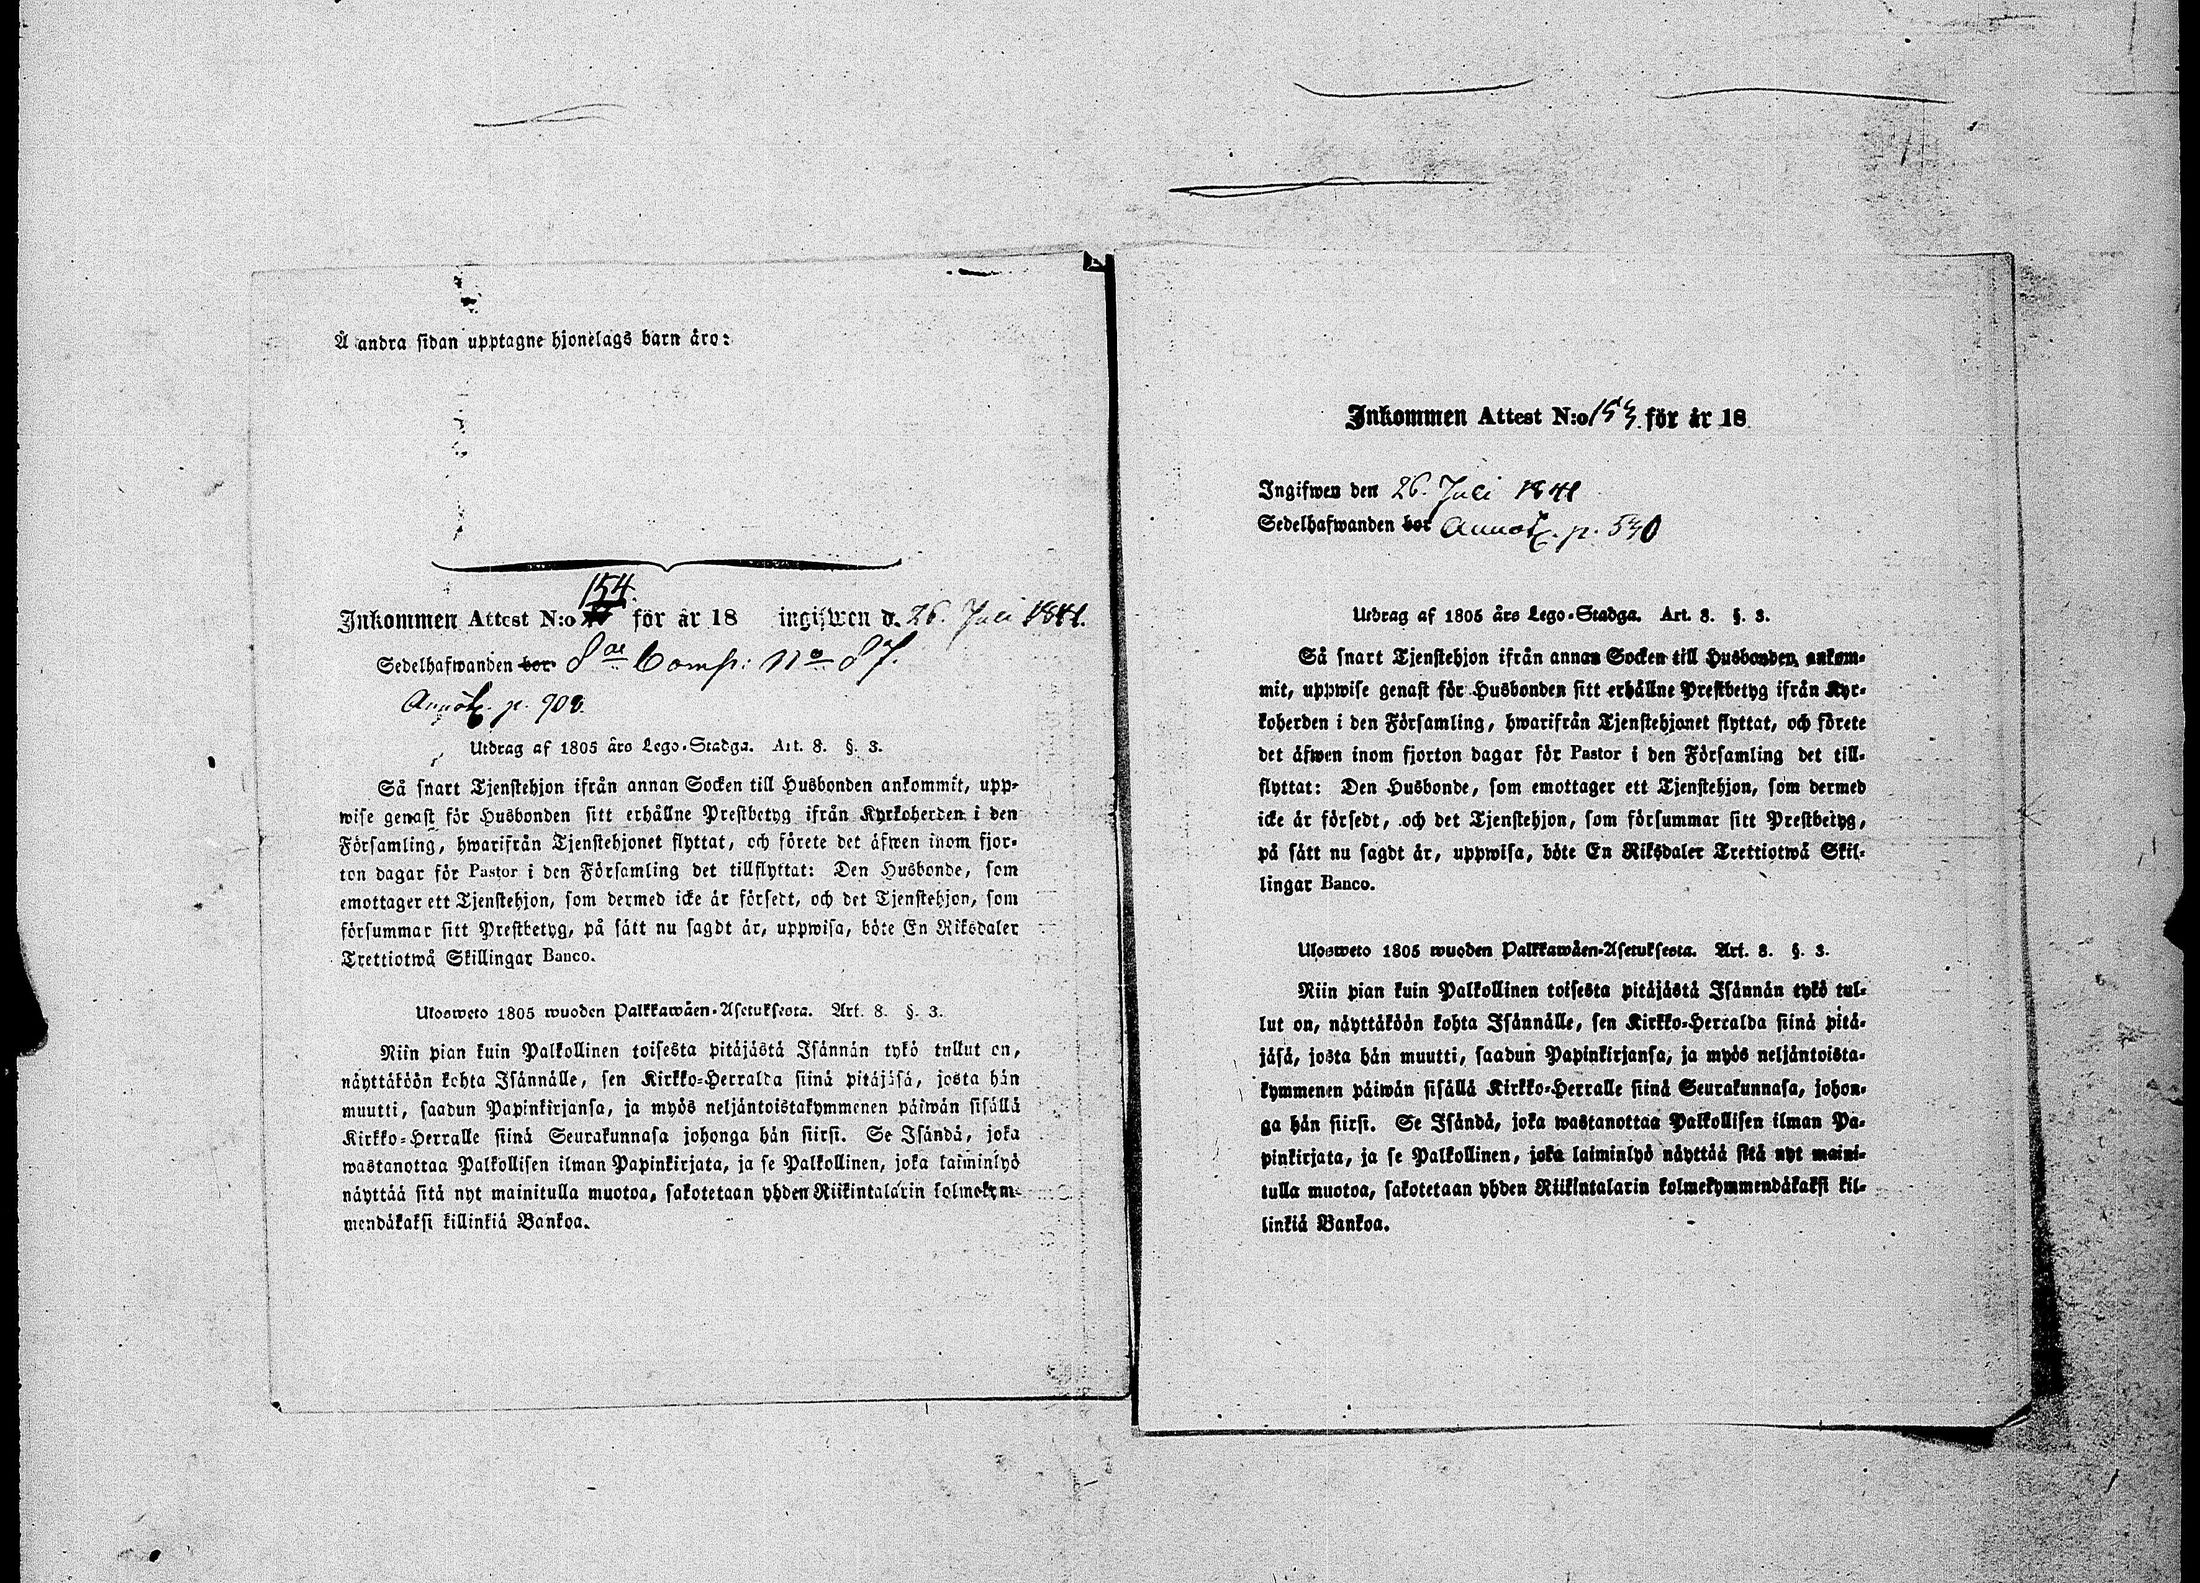 Å andra sidan upptagne hjonelags barn äro:
154
Inkommen Attest N:o för år 18 ingifwen d. 26. Juli 1841.
Sedelhafwanden bor 8de Comp: No 87.
Annot. p. 908.
Utdrag af 1805 års Lego-Stadga. Art. 8. §. 3.
Så snart Tjenstehjon ifrån annan Socken till Husbonden ankommit, upp-
wise genast för Husbonden sitt erhållne Prestbetyg ifrån Kyrkoherden i den
Församling, hwarifrån Tjenstehjonet flyttat, och förete det äfwen inom fjor-
ton dagar för Pastor i den Församling det tillflyttat: Den Husbonde, som
emottager ett Tjenstehjon, som dermed icke är försedt, och det Tjenstehjon, som
försummar sitt Prestbetyg, på sätt nu sagdt är, uppwisa, böte En Riksdaler
Trettiotwå Skillingar Banco.
Ulosweto 1805 wuoden Palkkawäen-Asetuksesta. Art. 8. §. 3.
Niin pian kuin Palkollinen toisesta pitäjästä Isännän tykö tullut on,
näyttäköön kohta Isännälle, sen Kirkko-Herralda siinä pitäjäsä, josta hän
muutti, saadun Papinkirjansa, ja myös neljäntoistakymmenen päiwän sisällä
Kirkko-Herralle siinä Seurakunnasa johonga hän siirsi. Se Isändä, joka
wastanottaa Palkollisen ilman Papinkirjata, ja se Palkollinen, joka laiminlyö
näyttää sitä nyt mainitulla muotoa, sakotetaan yhden Riikintalarin kolmekym-
mendäkaksi killinkiä Bankoa.
Inkommen Attest N:o 153. för år 18
Ingifwen den 26. Juli 1841
Sedelhafwanden bor Annot. p. 530
Utdrag af 1805 års Lego-Stadga. Art. 8. §. 3.
Så snart Tjenstehjon ifrån annan Socken till Husbonden ankom-
mit, uppwise genast för Husbonden sitt erhållne Prestbetyg ifrån Kyr-
koherden i den Församling, hwarifrån Tjenstehjonet flyttat, och förete
det äfwen inom fjorton dagar för Pastor i den Församling det till-
flyttat: Den Husbonde, som emottager ett Tjenstehjon, som dermed
icke är försedt, och det Tjenstehjon, som försummar sitt Prestbetyg,
på sätt nu sagdt är, uppwisa, böte En Riksdaler Trettiotwå Skil-
lingar Banco.
Ulosweto 1805 wuoden Palkkawäen-Asetuksesta. Art. 8. §. 3.
Niin pian kuin Palkollinen toisesta pitäjästä Isännän tykö tul-
lut on, näyttäköön kohta Isännälle, sen Kirkko-Herralda siinä pitä-
jäsä, josta hän muutti, saadun Papinkirjansa, ja myös neljäntoista-
kymmenen päiwän sisällä Kirkko-Herralle siinä Seurakunnasa, johon-
ga hän siirsi. Se Isändä, joka wastanottaa Palkollisen ilman Pa-
pinkirjata, ja se Palkollinen, joka laiminlyö näyttää sitä nyt maini-
tulla muotoa, sakotetaan yhden Riikintalarin kolmekymmendäkaksi kil-
linkiä Bankoa.